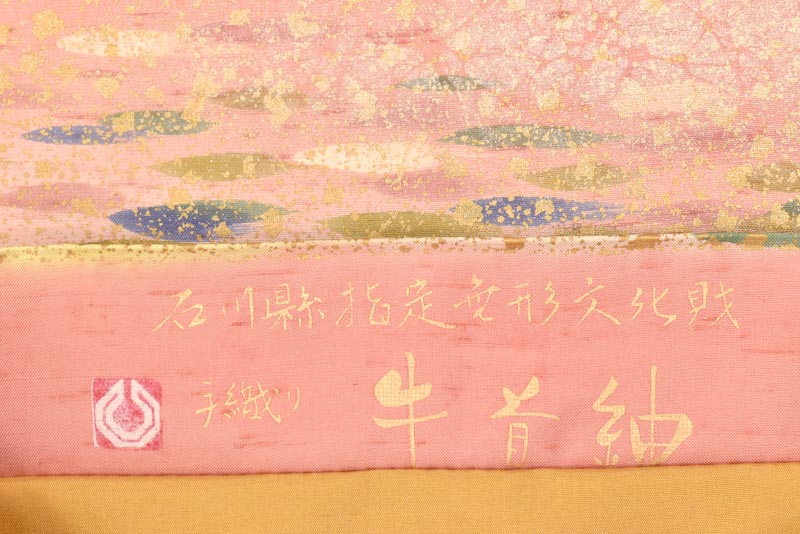 石川縣指定無形文化財
手織り
牛首紬